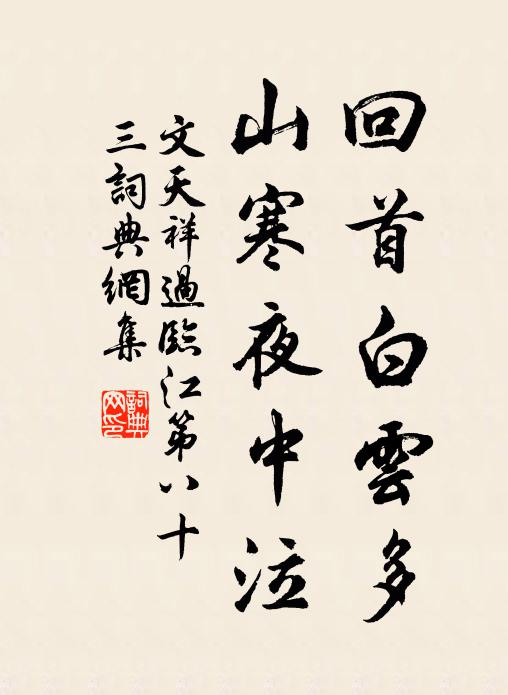 回首白雲多
山寒夜中泣
文天祥過臨江第八十
三詞典網集
詞典
网印